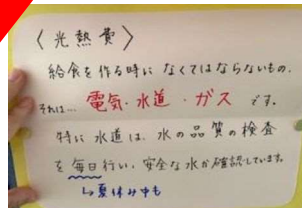 〈光熱費〉
給食を作る時になくてはならないもの。
それは… 電気・水道・ガス です。
特に 水道は、水の品質の検査
を毎日行い、安全な水か確認しています。
↳夏休み中も